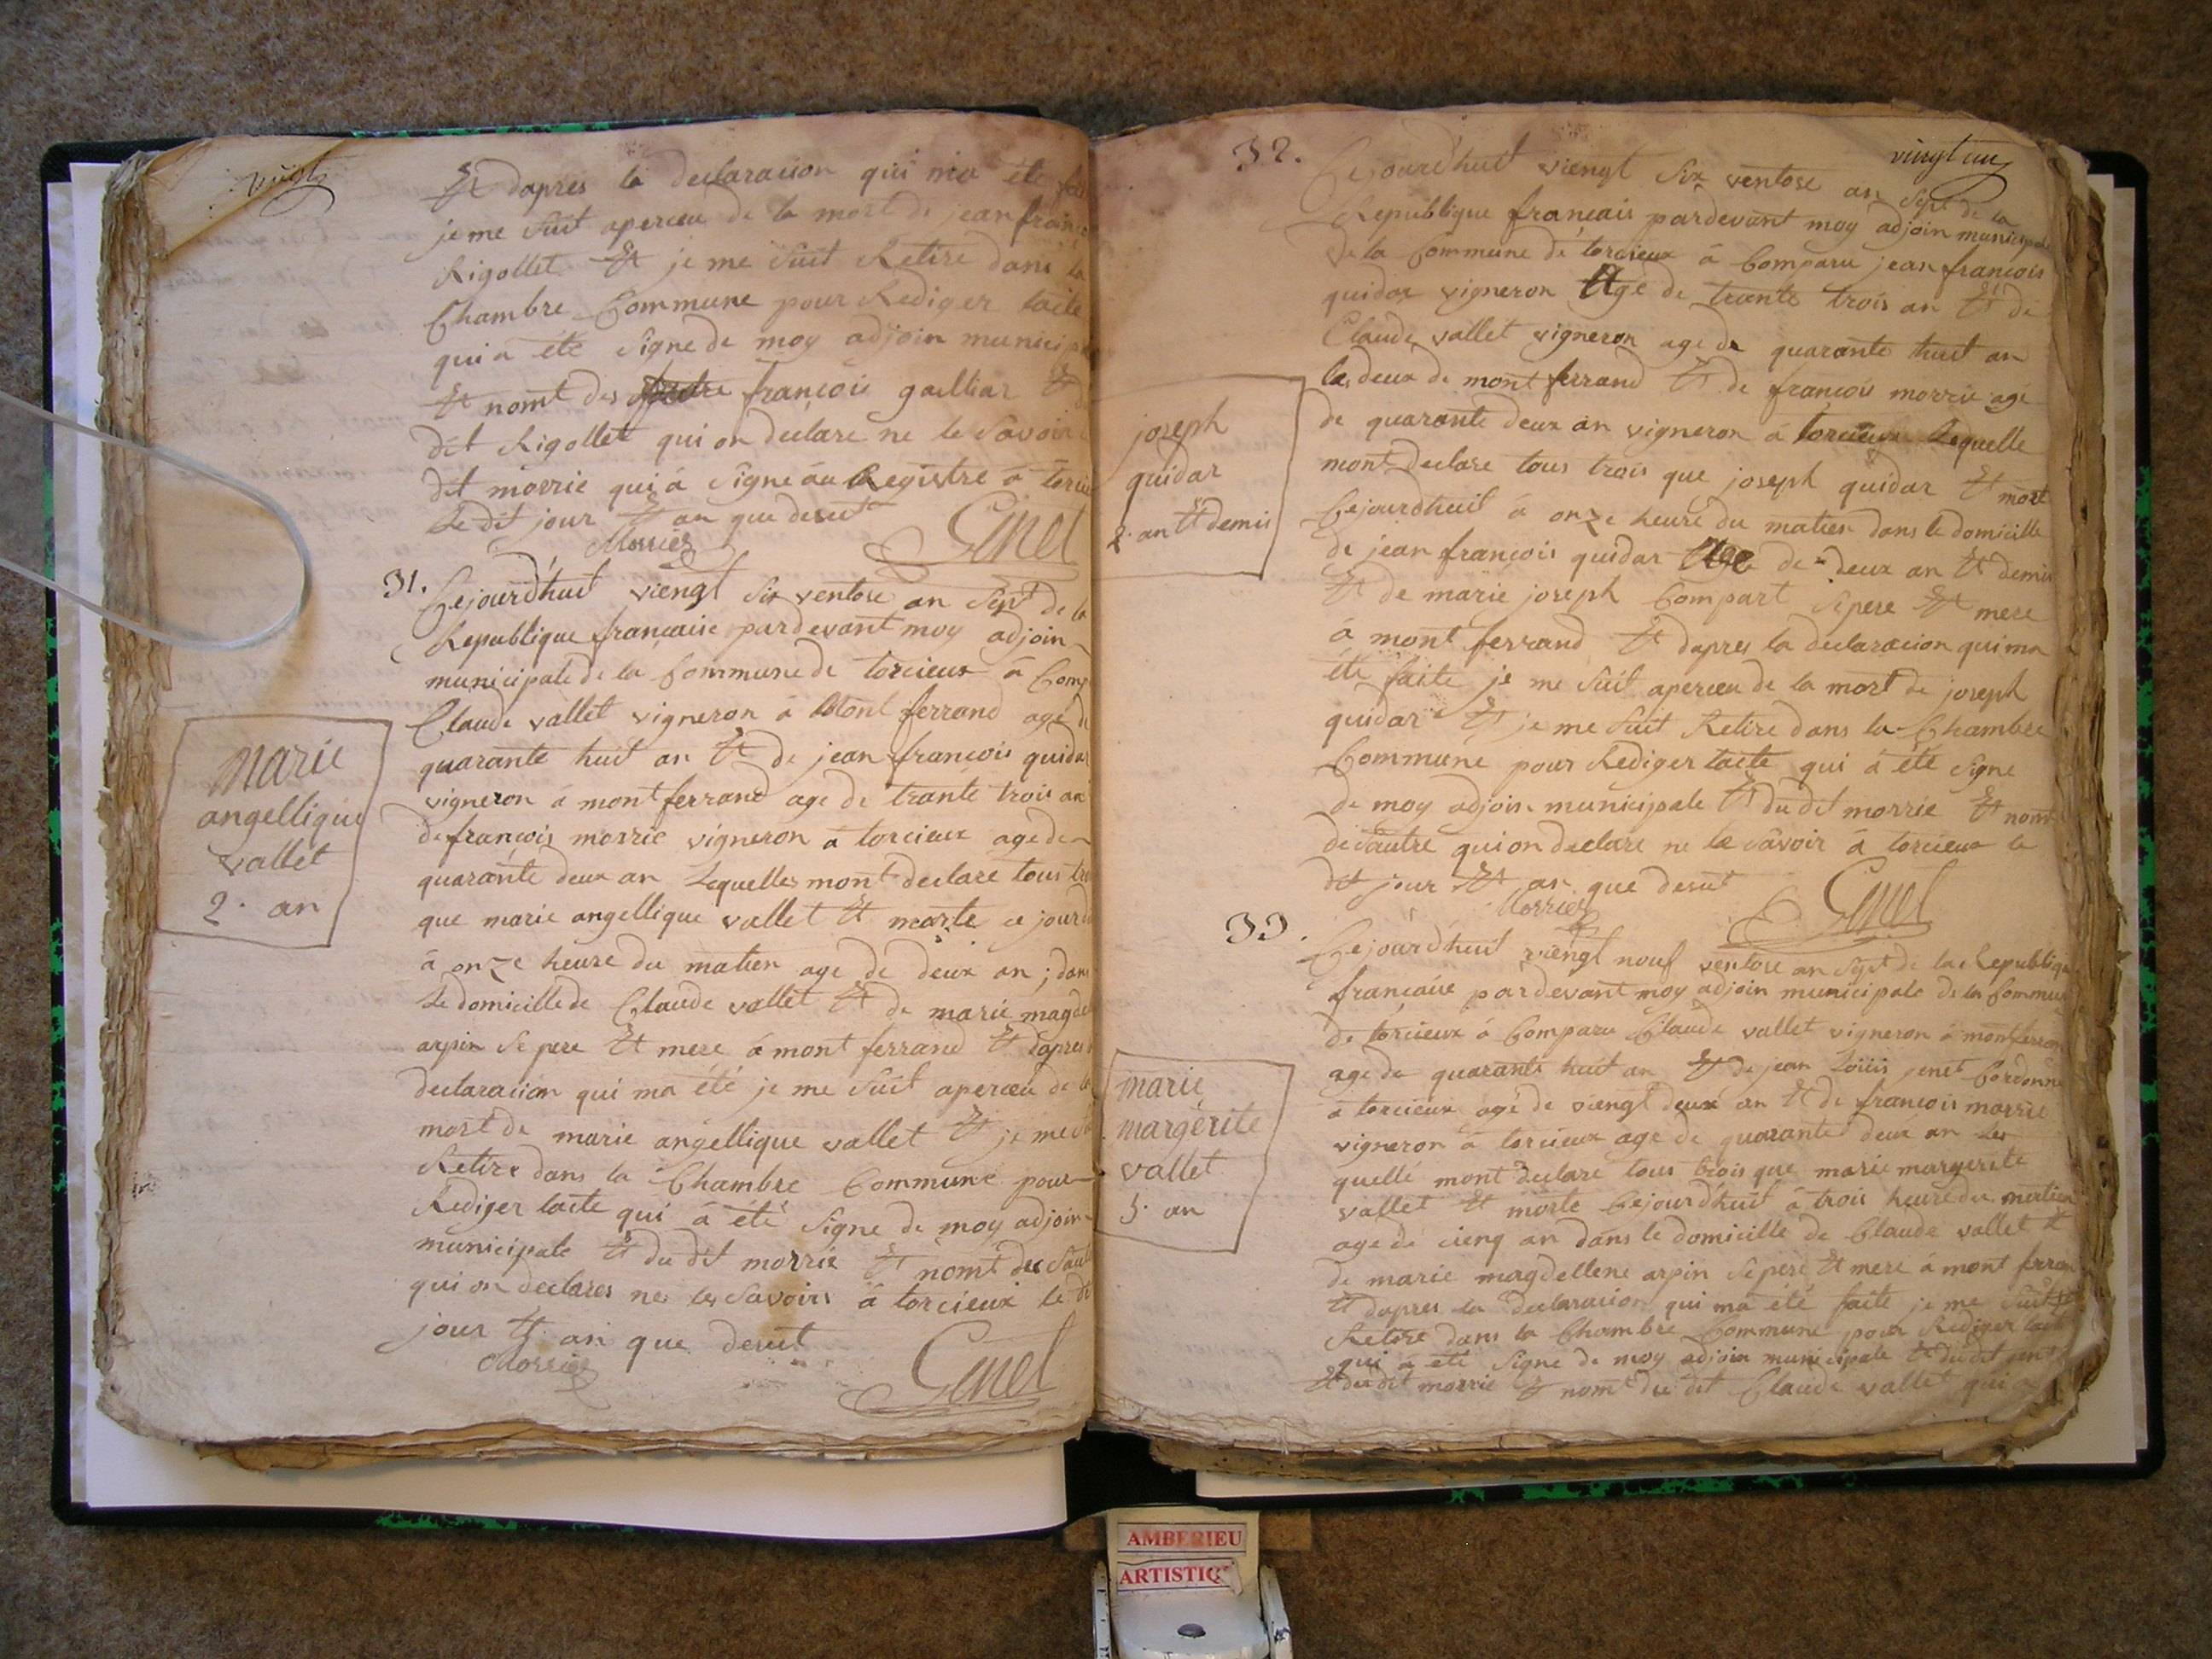 vingt
Et dapres la declaraiion qui ma été
je me suit aperceu de la mort de jean fran
Rigollet Et je me suit Retire dans la
Chambre Commune pour Rediger lacte
qui a été signe de moy adjoin municip
Et nomt des francois galliar Et
dit Rigollet qui on declare ne le savoir
dit morrie qui à signe au Registre à torcie
Le dit jour Et an que desut
Morrier Genel
31. Cejourdhuit viengt six ventose an sept de la
Republique francaise pardevant moy adjoin
municipale de la Commune de torcieux à Comp
Claude vallet vigneron à Mont ferrand agé de
quarante huit an Et de jean francois quidar
vigneron à mont ferrand age de trante trois an
de francois morrie vigneron à torcieux age de
quarante deux an Lequelles mont declare tous tro
que marie angellique vallet Et morte ce jourd
à onze heure du matien age de deux an ; dans
Le domicille de Claude vallet Et de marie magde
arpin se pere Et mere à mont ferrand Et dapres
declaraiion qui ma été je me suit aperceu de la
mort de marie angellique vallet Et je me
Retire dans la Chambre Commune pour
Rediger lacte qui à été signe de moy adjoin
municipale Et du dit morrie Et nomt de
qui on declares ne les savoirs à torcieux le dit
jour Et an que desut
Morrier Genel
marie
angellique
vallet
2. an
vingt un
32. Cejourdhuit viengt six ventose an sept de la
Republique francais pardevant moy adjoin municipale
de la Commune de torcieux à Comparu jean francois
quidar vigneron Age de trante trois an Et de
Claude vallet vigneron age de quarante huit an
les deux de mont ferrand Et de francois morrie age
de quarante deux an vigneron à torcieux Lequelle
mont declare tous trois que joseph quidar Et mort
Cejourdhuit à onze heure du matien dans le domicille
de jean francois quidar Age de deux an Et demis
Et de marie joseph Compart se pere Et mere
à mont ferrand Et dapres la declaracion qui ma
été faite je me suit aperceu de la mort de joseph
quidar Et je me suit Retire dans la Chambre
Commune pour Rediger lacte qui à été signe
de moy adjoin municipale Et du dit morrie Et nomt
de autre qui on declare ne le savoir à torcieux le
dit jour Et an que desut
Morrier Genel
joseph
quidar
2. an Et demis
33. Cejourdhuit viengt nouf ventose an sept de la Republique
francaise pardevant moy adjoin municipale de la Commune
de torcieux à Comparu Claude vallet vigneron à montferran
age de quarante huit an Et de jean Louis jenet Cordonne
à torcieux agé de viengt deux an Et de francois morrie
vigneron à torcieux age de quarante deux an Les
quelle mont declare tous trois que marie margerite
vallet Et morte Cejourdhuit à trois heure du matien
age de cienq an dans le domicille de Claude vallet Et
de marie magdellene arpin se pere Et mere à mont ferran
Et dapres la declaraiion qui ma été faite je me suit
Retire dans la Chambre Commune pour Rediger lacte
qui à été signe de moy adjoin municipale Et du dit jenet
Et du dit morrie Et nomt du dit Claude vallet qui
marie
margérite
vallet
5. an
AMBERIEU
ARTISTIQ